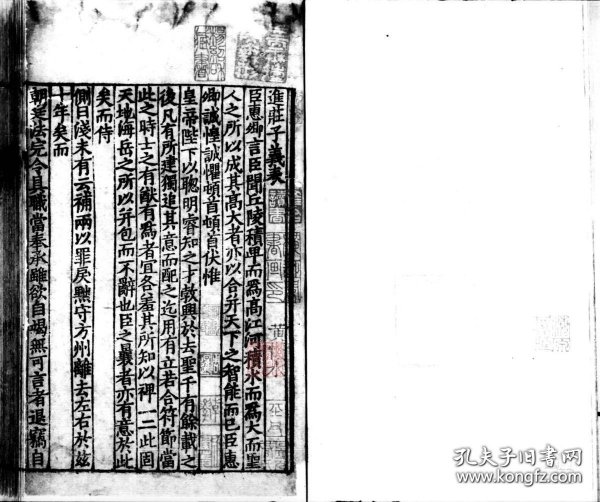 進莊子義表
臣惠卿言臣聞丘陵積卑而爲高江河積水而爲大而聖
人之所以成其高大者亦以合并天下之智能而已臣惠
卿誠惶誠懼頓首頓首伏惟
皇帝陛下以聰明睿知之才敦興於去聖千有餘載之
後凡有所建獨追其意而配之迄用有立若合符節當
此之時士之有猷有爲者宜各羞其所知以裨一二此固
天地海岳之所以并包而不辭也臣之曩者亦有意於此
矣而侍
側日淺未有云補兩以罪戾黜守方州離去左右於玆
十年矣而
朝廷法完令具職當奉承雖欲自竭無可言者退竊自
孔夫子旧书网
kongfz.com